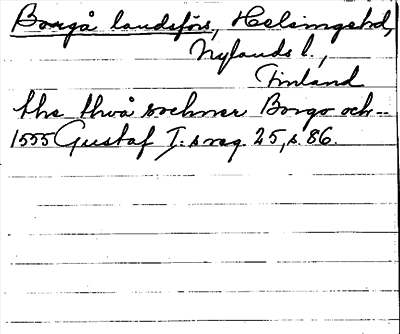 Borgå landsförs, Helsingehd,
Nylands l.,
Finland
the thvå sochner Borgo och--
1555 Gustaf I:s reg. 25, s. 86.